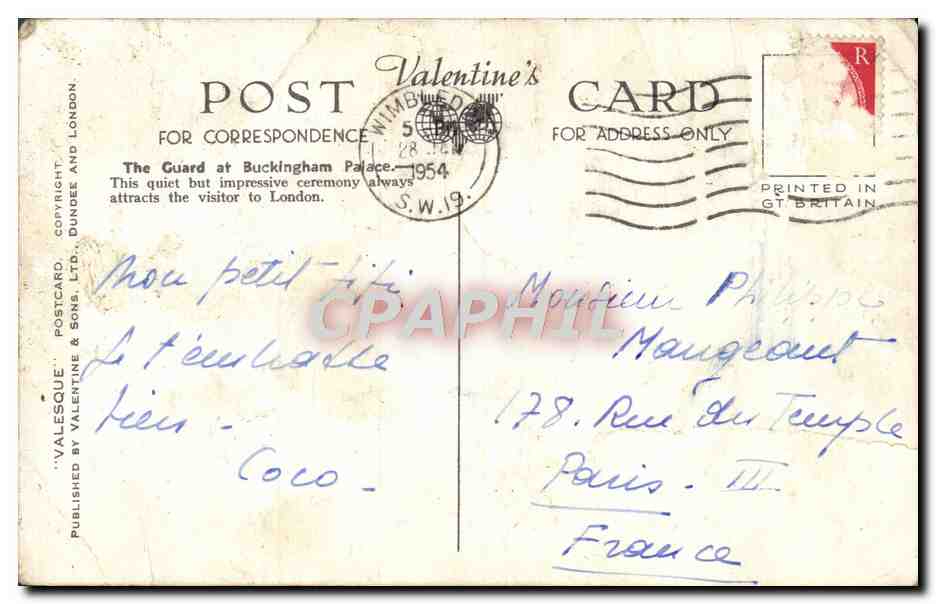 POST Valentine's CARD
FOR CORRESPONDENCE
FOR ADDRESS ONLY
The Guard at Buckingham Palace.
This quiet but impressive ceremony always
attracts the visitor to London.
WIMBLEDON
5
28 JAN
1954
S.W.19.
R
PRINTED IN
GT. BRITAIN
"VALESQUE" POSTCARD. COPYRIGHT.
PUBLISHED BY VALENTINE & SONS, LTD., DUNDEE AND LONDON.
Mon petit fifi
Je t'embrasse
bien -
Coco -
Monsieur Philippe
Mangeant
178. Rue du Temple
Paris - III
France
CPAPHIL